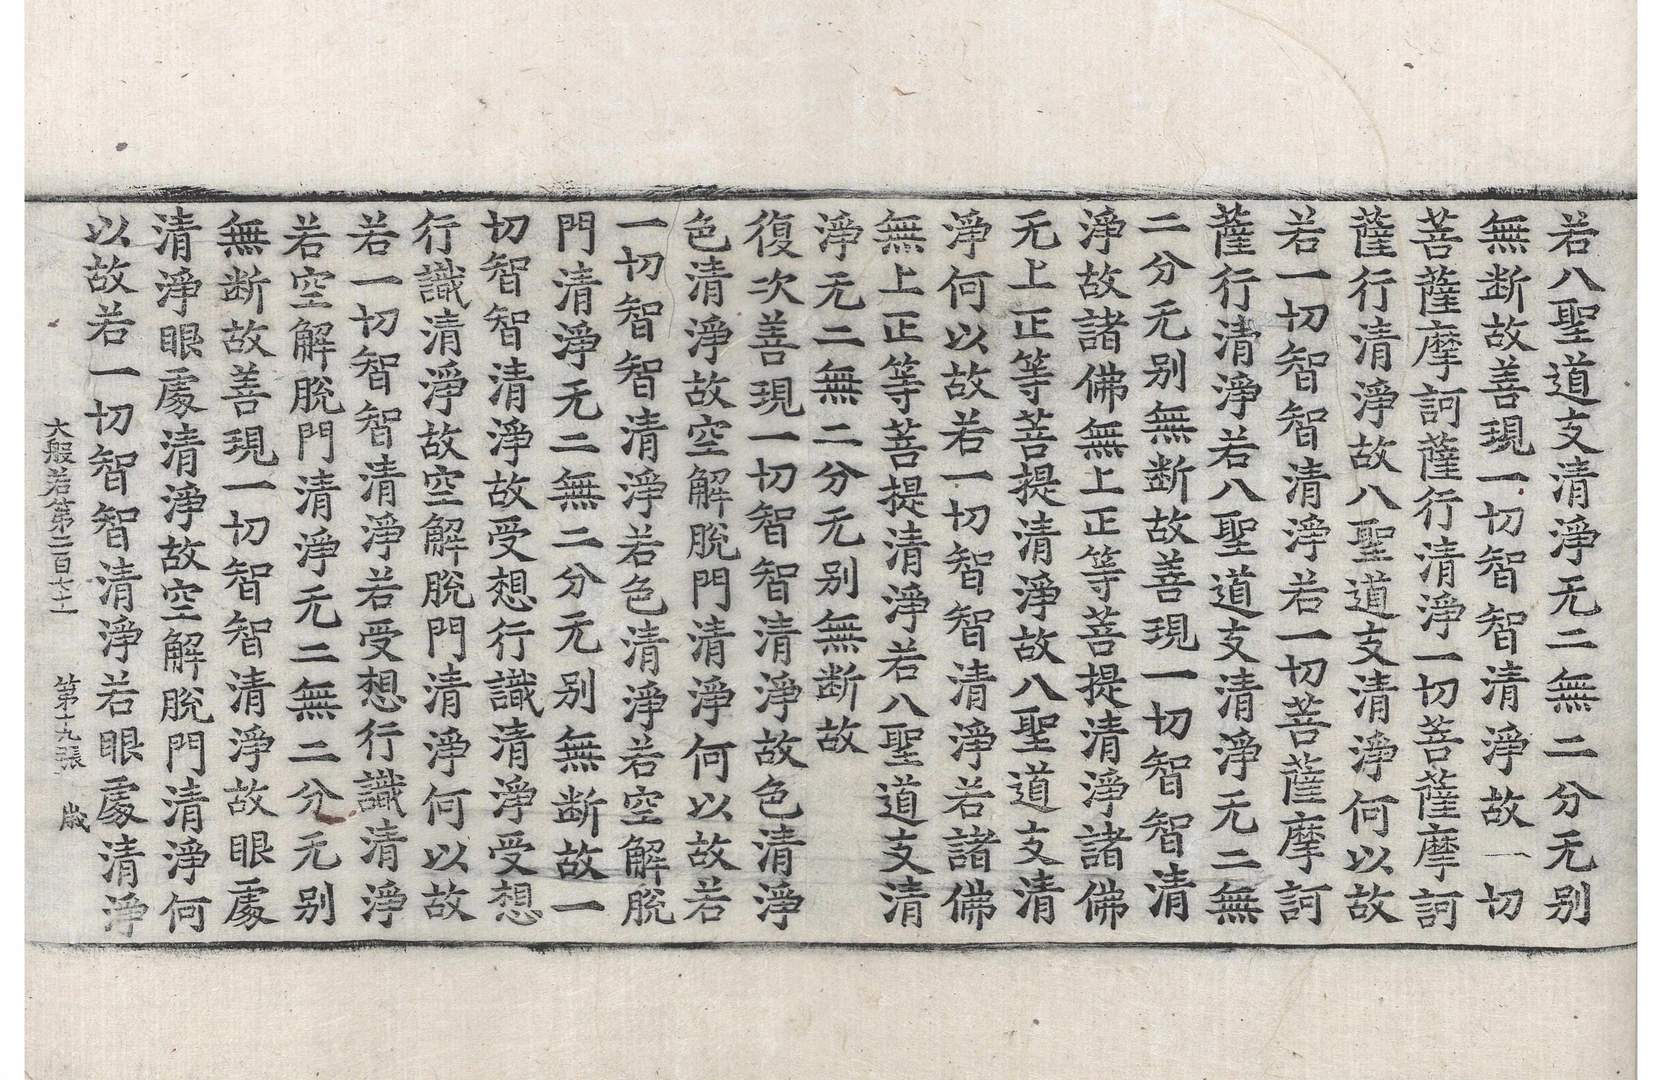 若八聖道支清淨无二無二分无别
無断故善現一切智智清淨故一切
菩薩摩訶薩行清淨一切菩薩摩訶
薩行清淨故八聖道支清淨何以故
若一切智智清淨若一切菩薩摩訶
薩行清淨若八聖道支清淨无二無
二分无别無断故善現一切智智清
淨故諸佛無上正等菩提清淨諸佛
无上正等菩提清淨故八聖道支清
淨何以故若一切智智清淨若諸佛
無上正等菩提清淨若八聖道支清
淨无二無二分无别無断故
復次善現一切智智清淨故色清淨
色清淨故空解脫門清淨何以故若
一切智智清淨若色清淨若空解脫
門清淨无二無二分无别無断故一
切智智清淨故受想行識清淨受想
行識清淨故空解脫門清淨何以故
若一切智智清淨若受想行識清淨
若空解脫門清淨无二無二分无别
無断故善現一切智智清淨故眼處
清淨眼處清淨故空解脫門清淨何
以故若一切智智清淨若眼處清淨
大般若第二百七十一 第十九張 歲